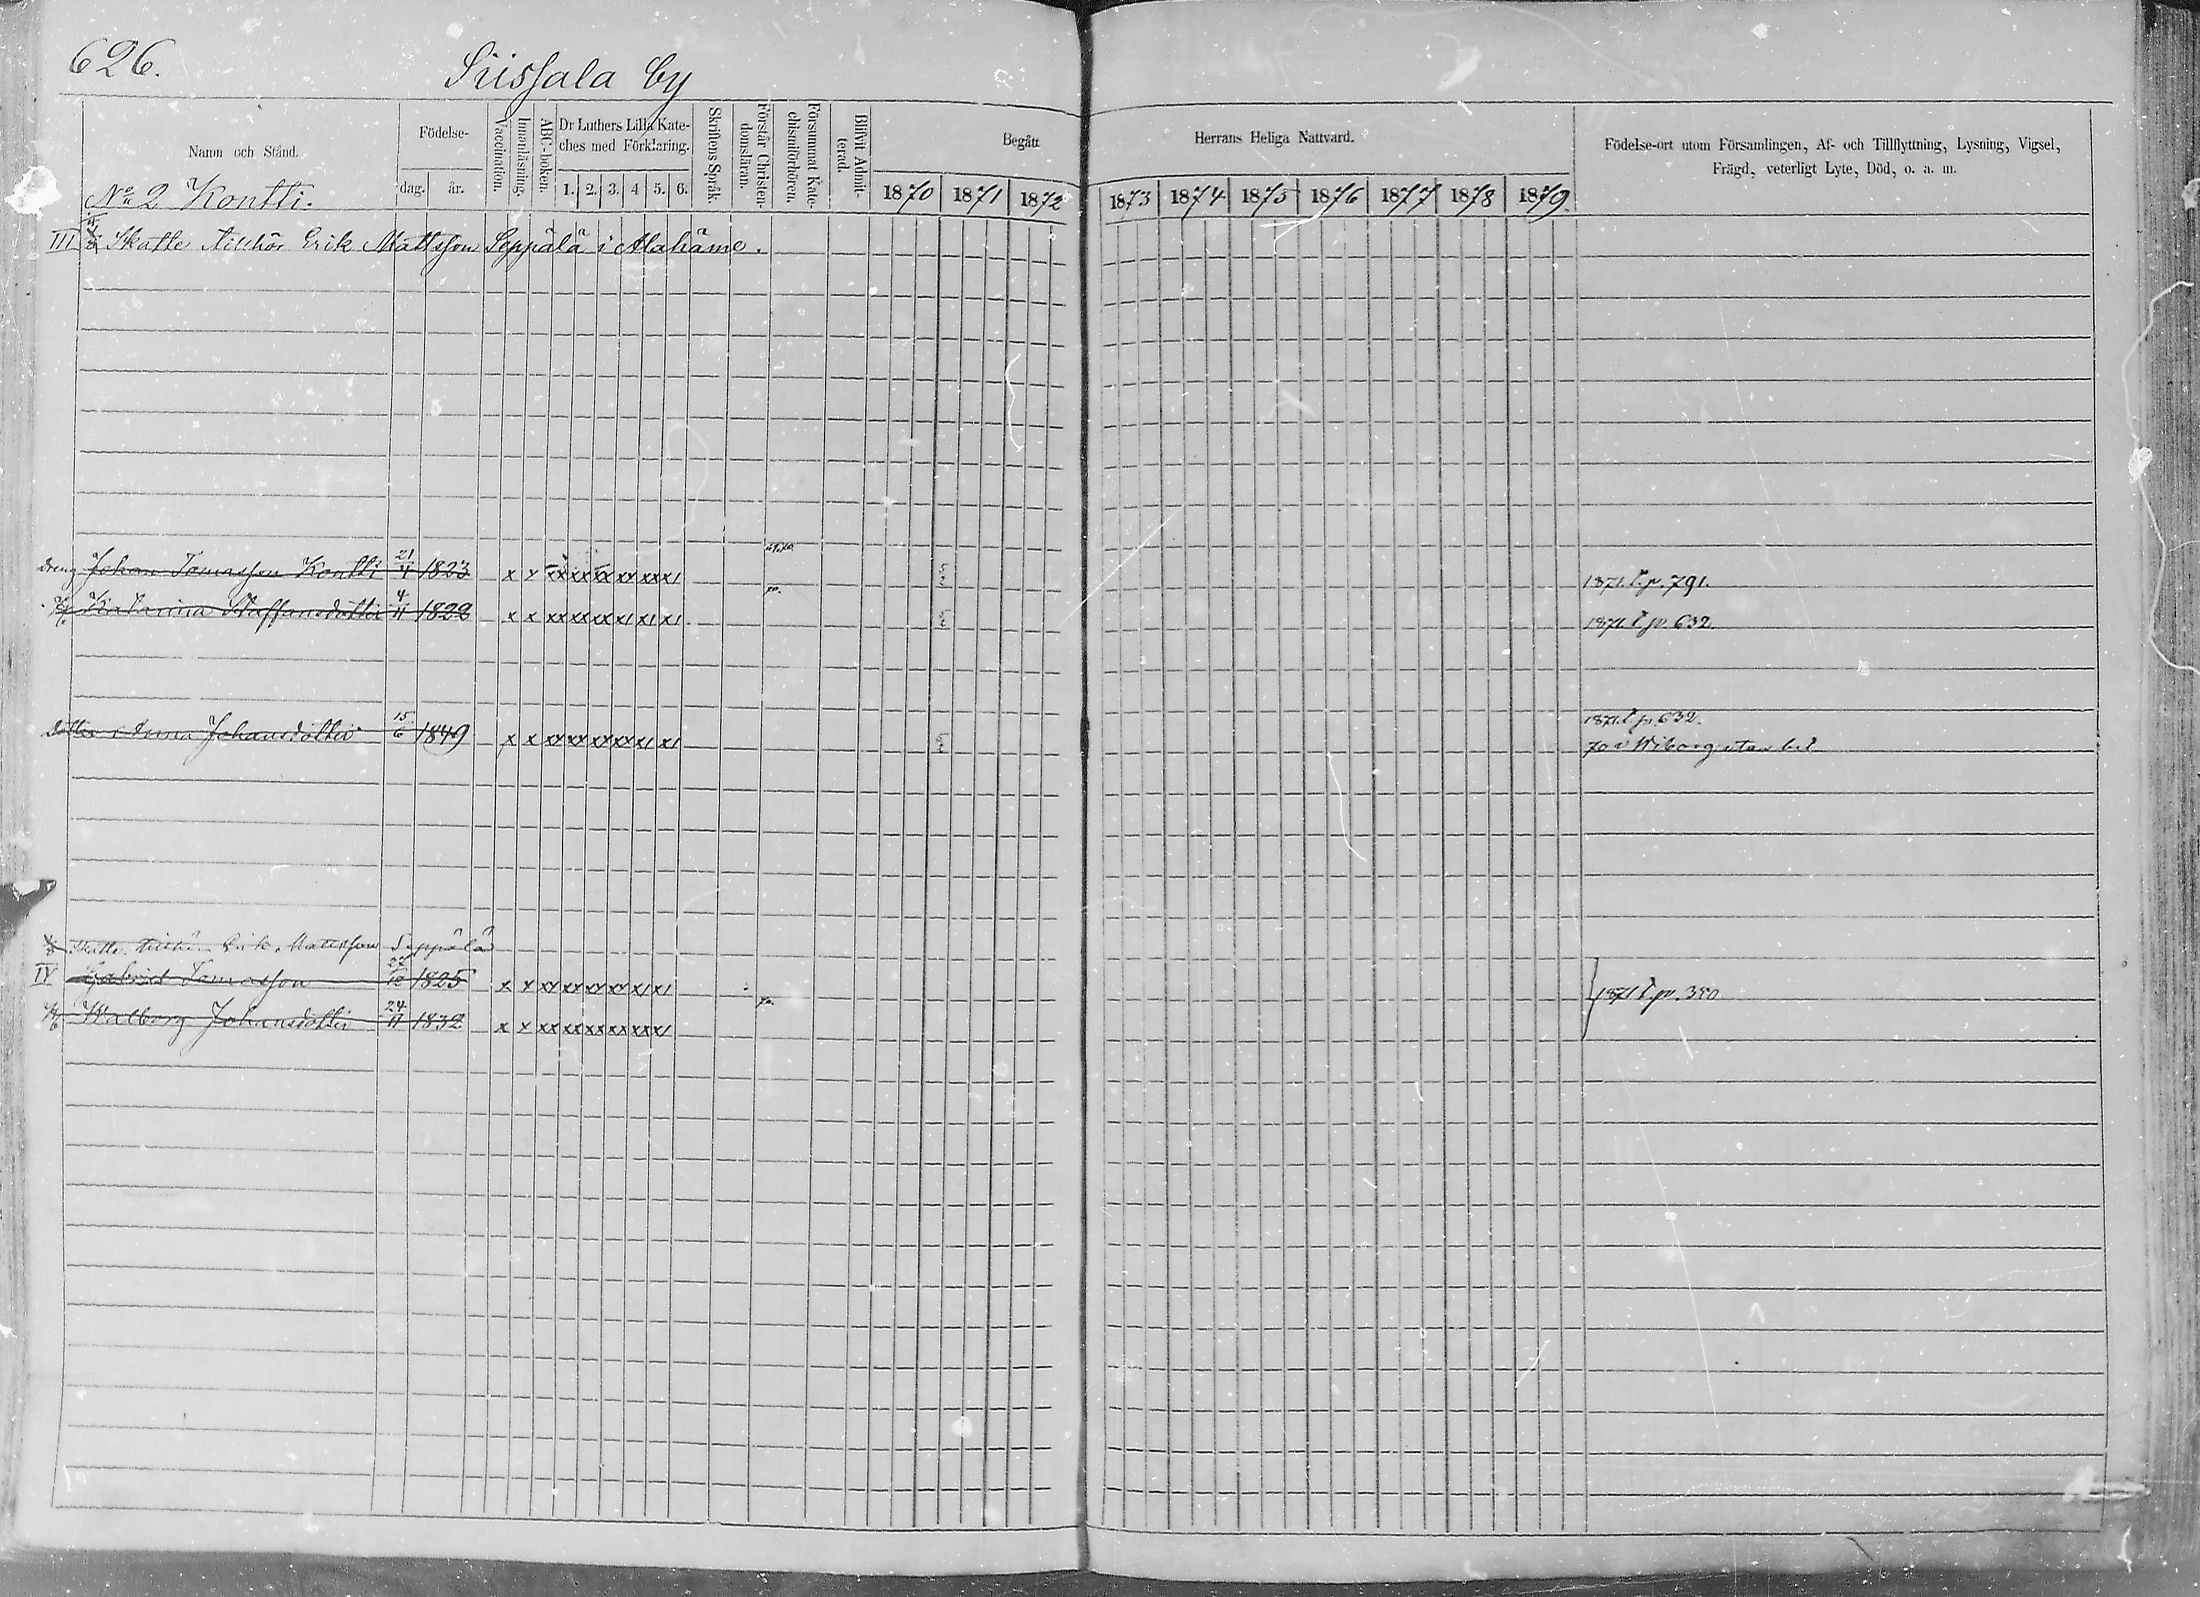 626.
Siissala by
Namn och Stånd.
Födelse-
dag. år.
Vaccination.
Innanläsning.
ABC-boken.
Dr Luthers Lilla Kate-
ches med Förklaring.
1. 2. 3. 4 5. 6.
Skriftens Språk.
Förstår Christen-
domsläran.
Försummat Kate-
chismiförhören.
Blifvit Admit-
terad.
Begått
Herrans Heliga Nattvard.
1870 1871 1872 1873 1874 1875 1876 1877 1878 1879.
Födelse-ort utom Församlingen, Af- och Tillflyttning, Lysning, Vigsel,
Frägd, veterligt Lyte, Död, o. a. m.
No 2 Kontti.
III Skatte tillhör Erik Mattsson Seppälä i Alahäme.
Dreng Johan Tomasson Kontti 21/4 1823 x x xx xx xx xx xx xı 1871 t. p. 791.
Katarina Staffansdotter 4/11 1822 x x xx xx xx xı xı xı 1871 t. p. 632.
1871 t. p. 632.
Dotter Anna Johansdotter 15/6 1849 x x xx xx xx xx xı xı 70 i Wiborg utan bet
Skatte tillhör Erik Mattsson Seppälä
IV Gabriel Tomasson 27/10 1825 x x xx xx xx xx xı xı
1871 t. p. 380
Walborg Johansdotter 24/11 1832 x x xx xx xx xx xx xı